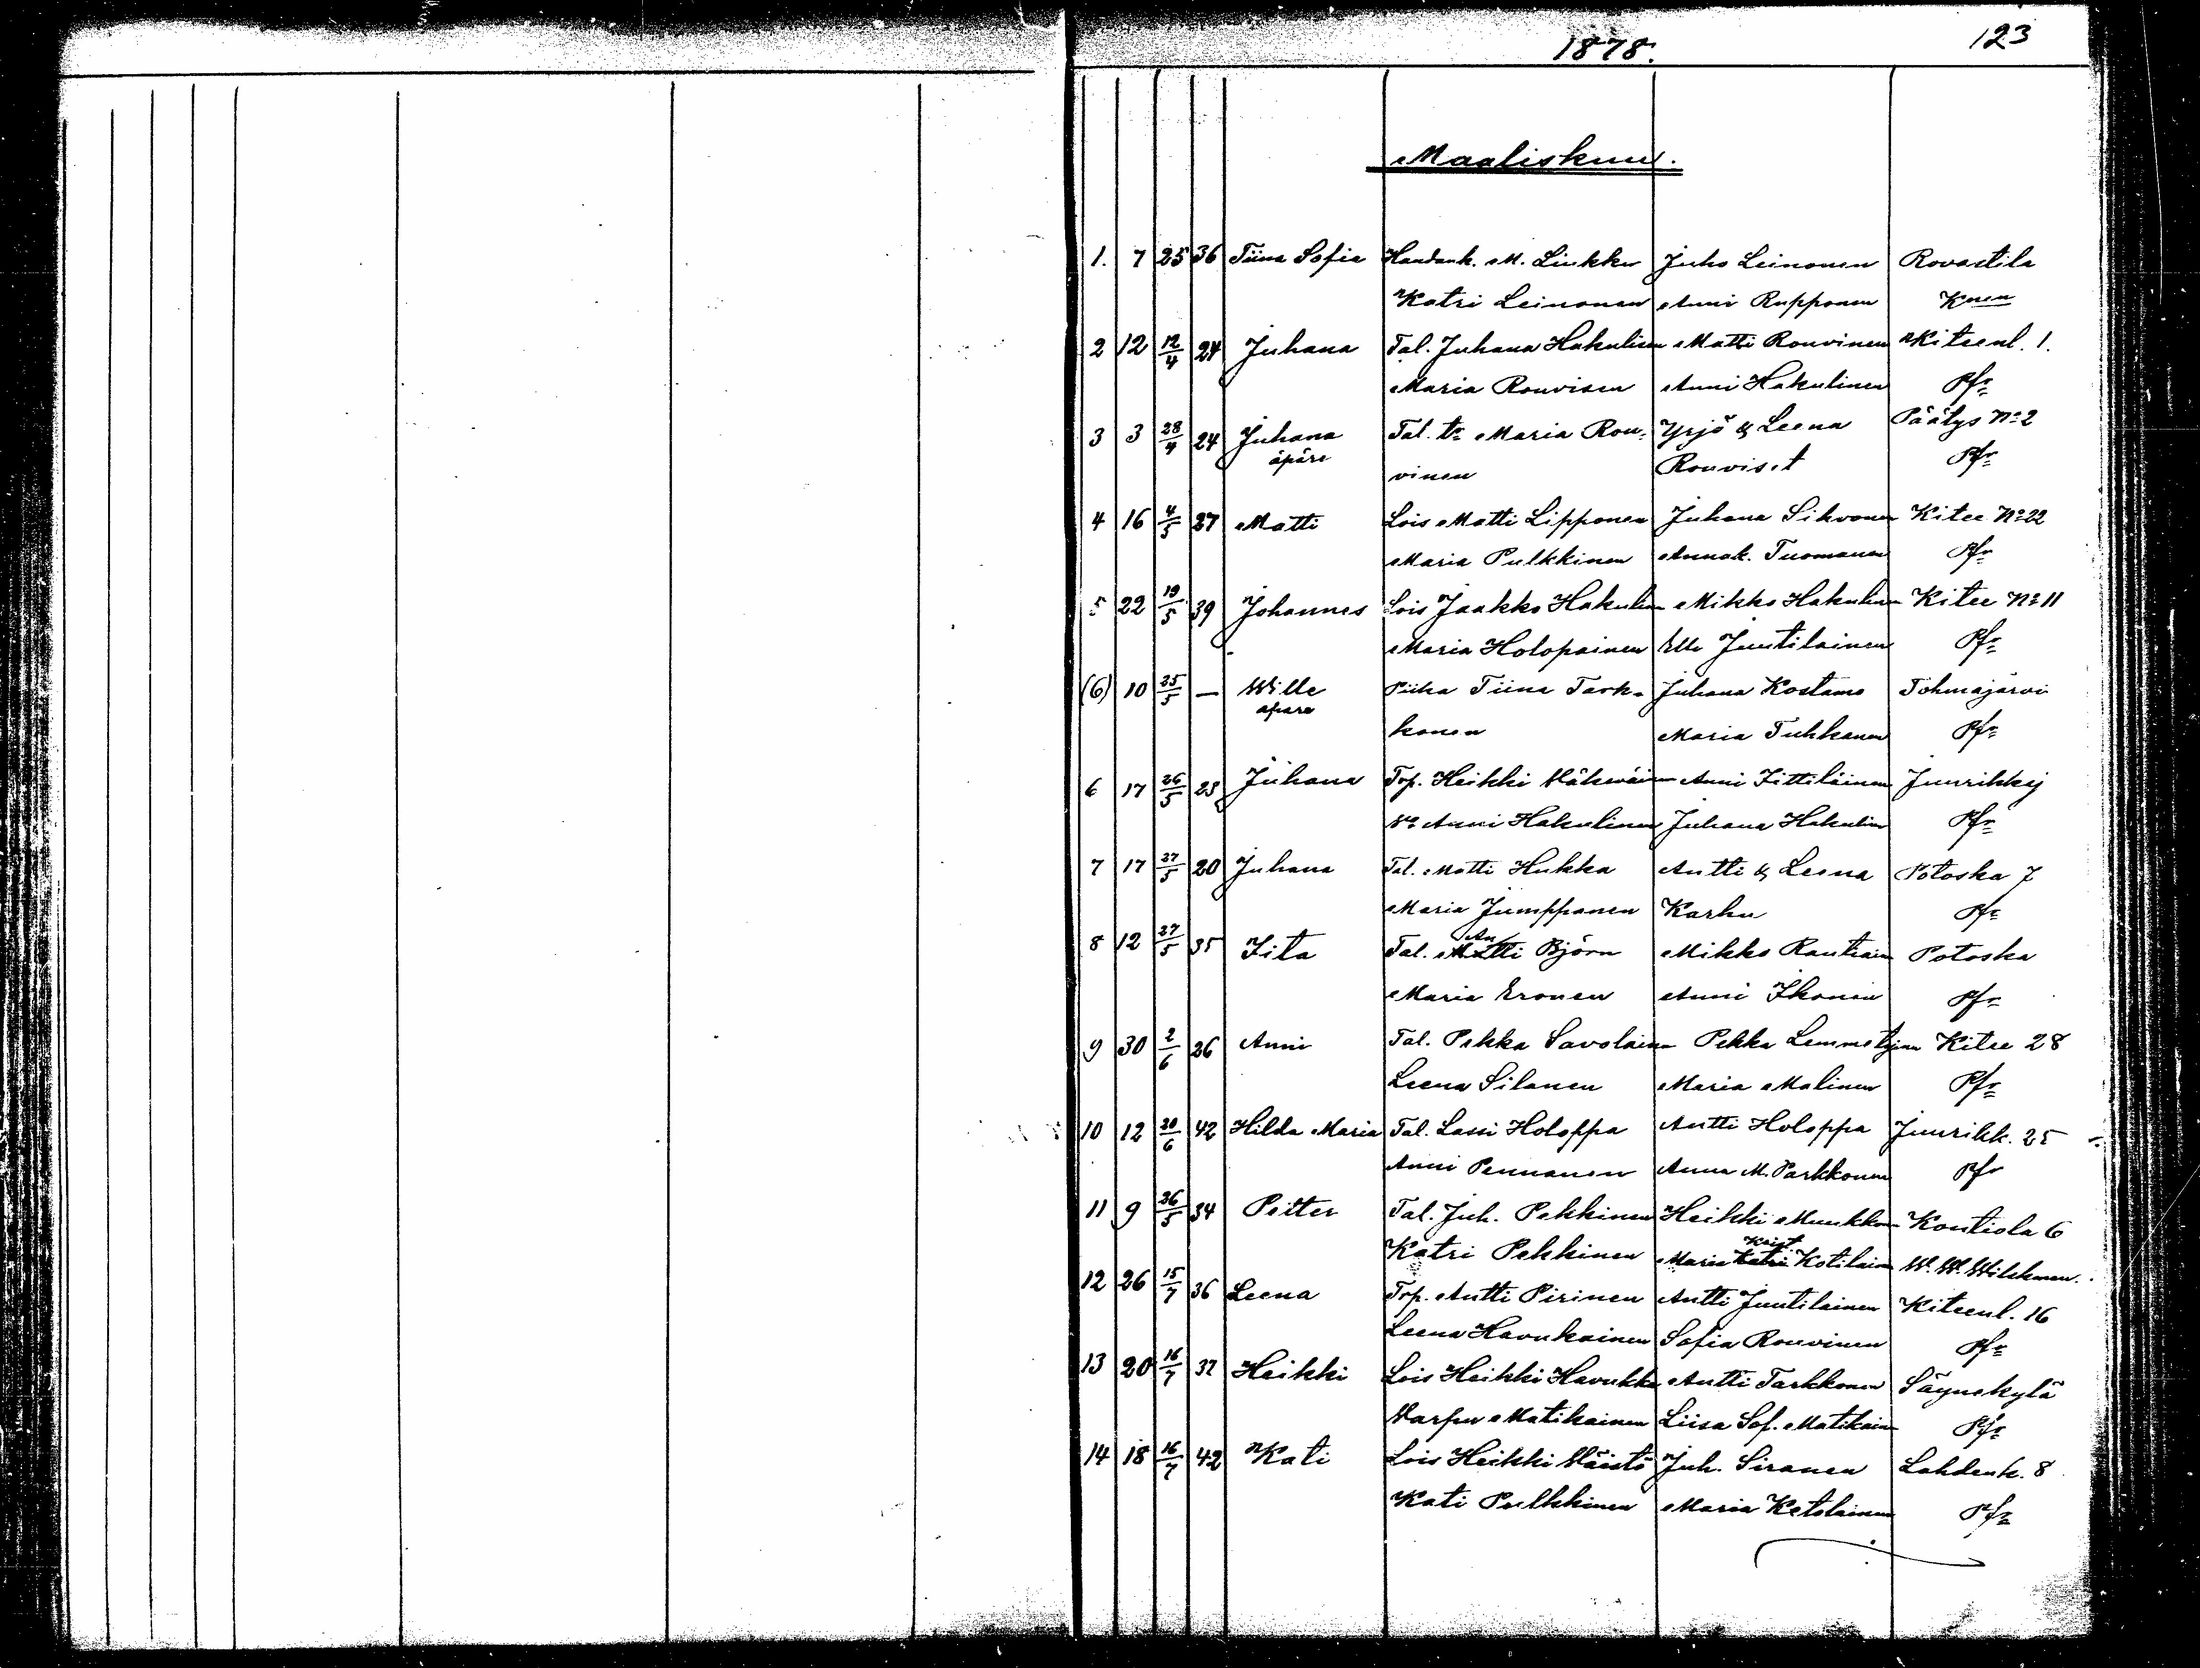 1878.
123
Maaliskuu.
1. 7 25 36 Tiina Sofia Handank. M. Liukku Juho Leinonen Rovastila
Katri Leinonen Anni Rupponen Knen
2 12 12/4 24 Juhana Tal. Juhana Hakulisen Matti Rouvinen Kiteenl. 1.
Maria Rouvisen Anni Hakulinen Pfr
3 3 28/4 24 Juhana Tal. tr Maria Rou- Yrjö & Leena Päätys No 2
äpäre vinen Rouviset Pfr
4 16 4/5 27 Matti Lois Matti Lipponen Juhana Sihvonen Kitee No 22
Maria Pulkkinen Annak. Tuomanen Pfr
5 22 19/5 39 Johannes Lois Jaakko Hakulin Mikko Hakulinen Kitee No 11
Maria Holopainen Elli Juutilainen Pfr
(6) 10 25/5 — Wille Piika Tiina Tark- Juhana Kostamo Tohmajärvi
äpäre konen Maria Tuhkanen Pfr
6 17 26/5 23 Juhana Torp. Heikki Väkeväinen Anni Tittiläinen Juurikkaj
Vo Anni Hakulinen Juhana Hakulin Pfr
7 17 27/5 20 Juhana Tal. Matti Hukka Antti & Leena Potoska 7
Maria Jumppanen Karhu Pfr
8 12 27/5 35 Iita Tal. Antti Björn Mikko Rautiain Potoska
Maria Eronen Anni Ikonen Pfr
9 30 2/6 26 Anni Tal. Pekka Savolainen Pekka Lemmetyinen Kitee 28
Leena Silanen Maria Malinen Pfr
10 12 20/6 42 Hilda Maria Tal. Lassi Holoppa Antti Holoppa Juurikk. 25
Anni Pennanen Anna M. Parkkonen Pfr
11 9 26/5 34 Petter Tal. Juh. Pekkinen Heikki Muukkonen Kontiola 6
Katri Pekkinen Maria Krist. Kotilain W. W. Wilkman.
12 26 15/7 36 Leena Torp. Antti Pirinen Antti Juutilainen Kiteenl. 16
Leena Havukainen Sofia Rouvinen Pfr
13 20 16/7 37 Heikki Lois Heikki Havukka Antti Tarkkonen Säynekylä
Varpu Matikainen Liisa Sof. Matikain Pfr
14 18 16/7 42 Kati Lois Heikki Väistö Juh. Siranen Lahdenk. 8
Kati Pulkkinen Maria Ketolainen Pfr